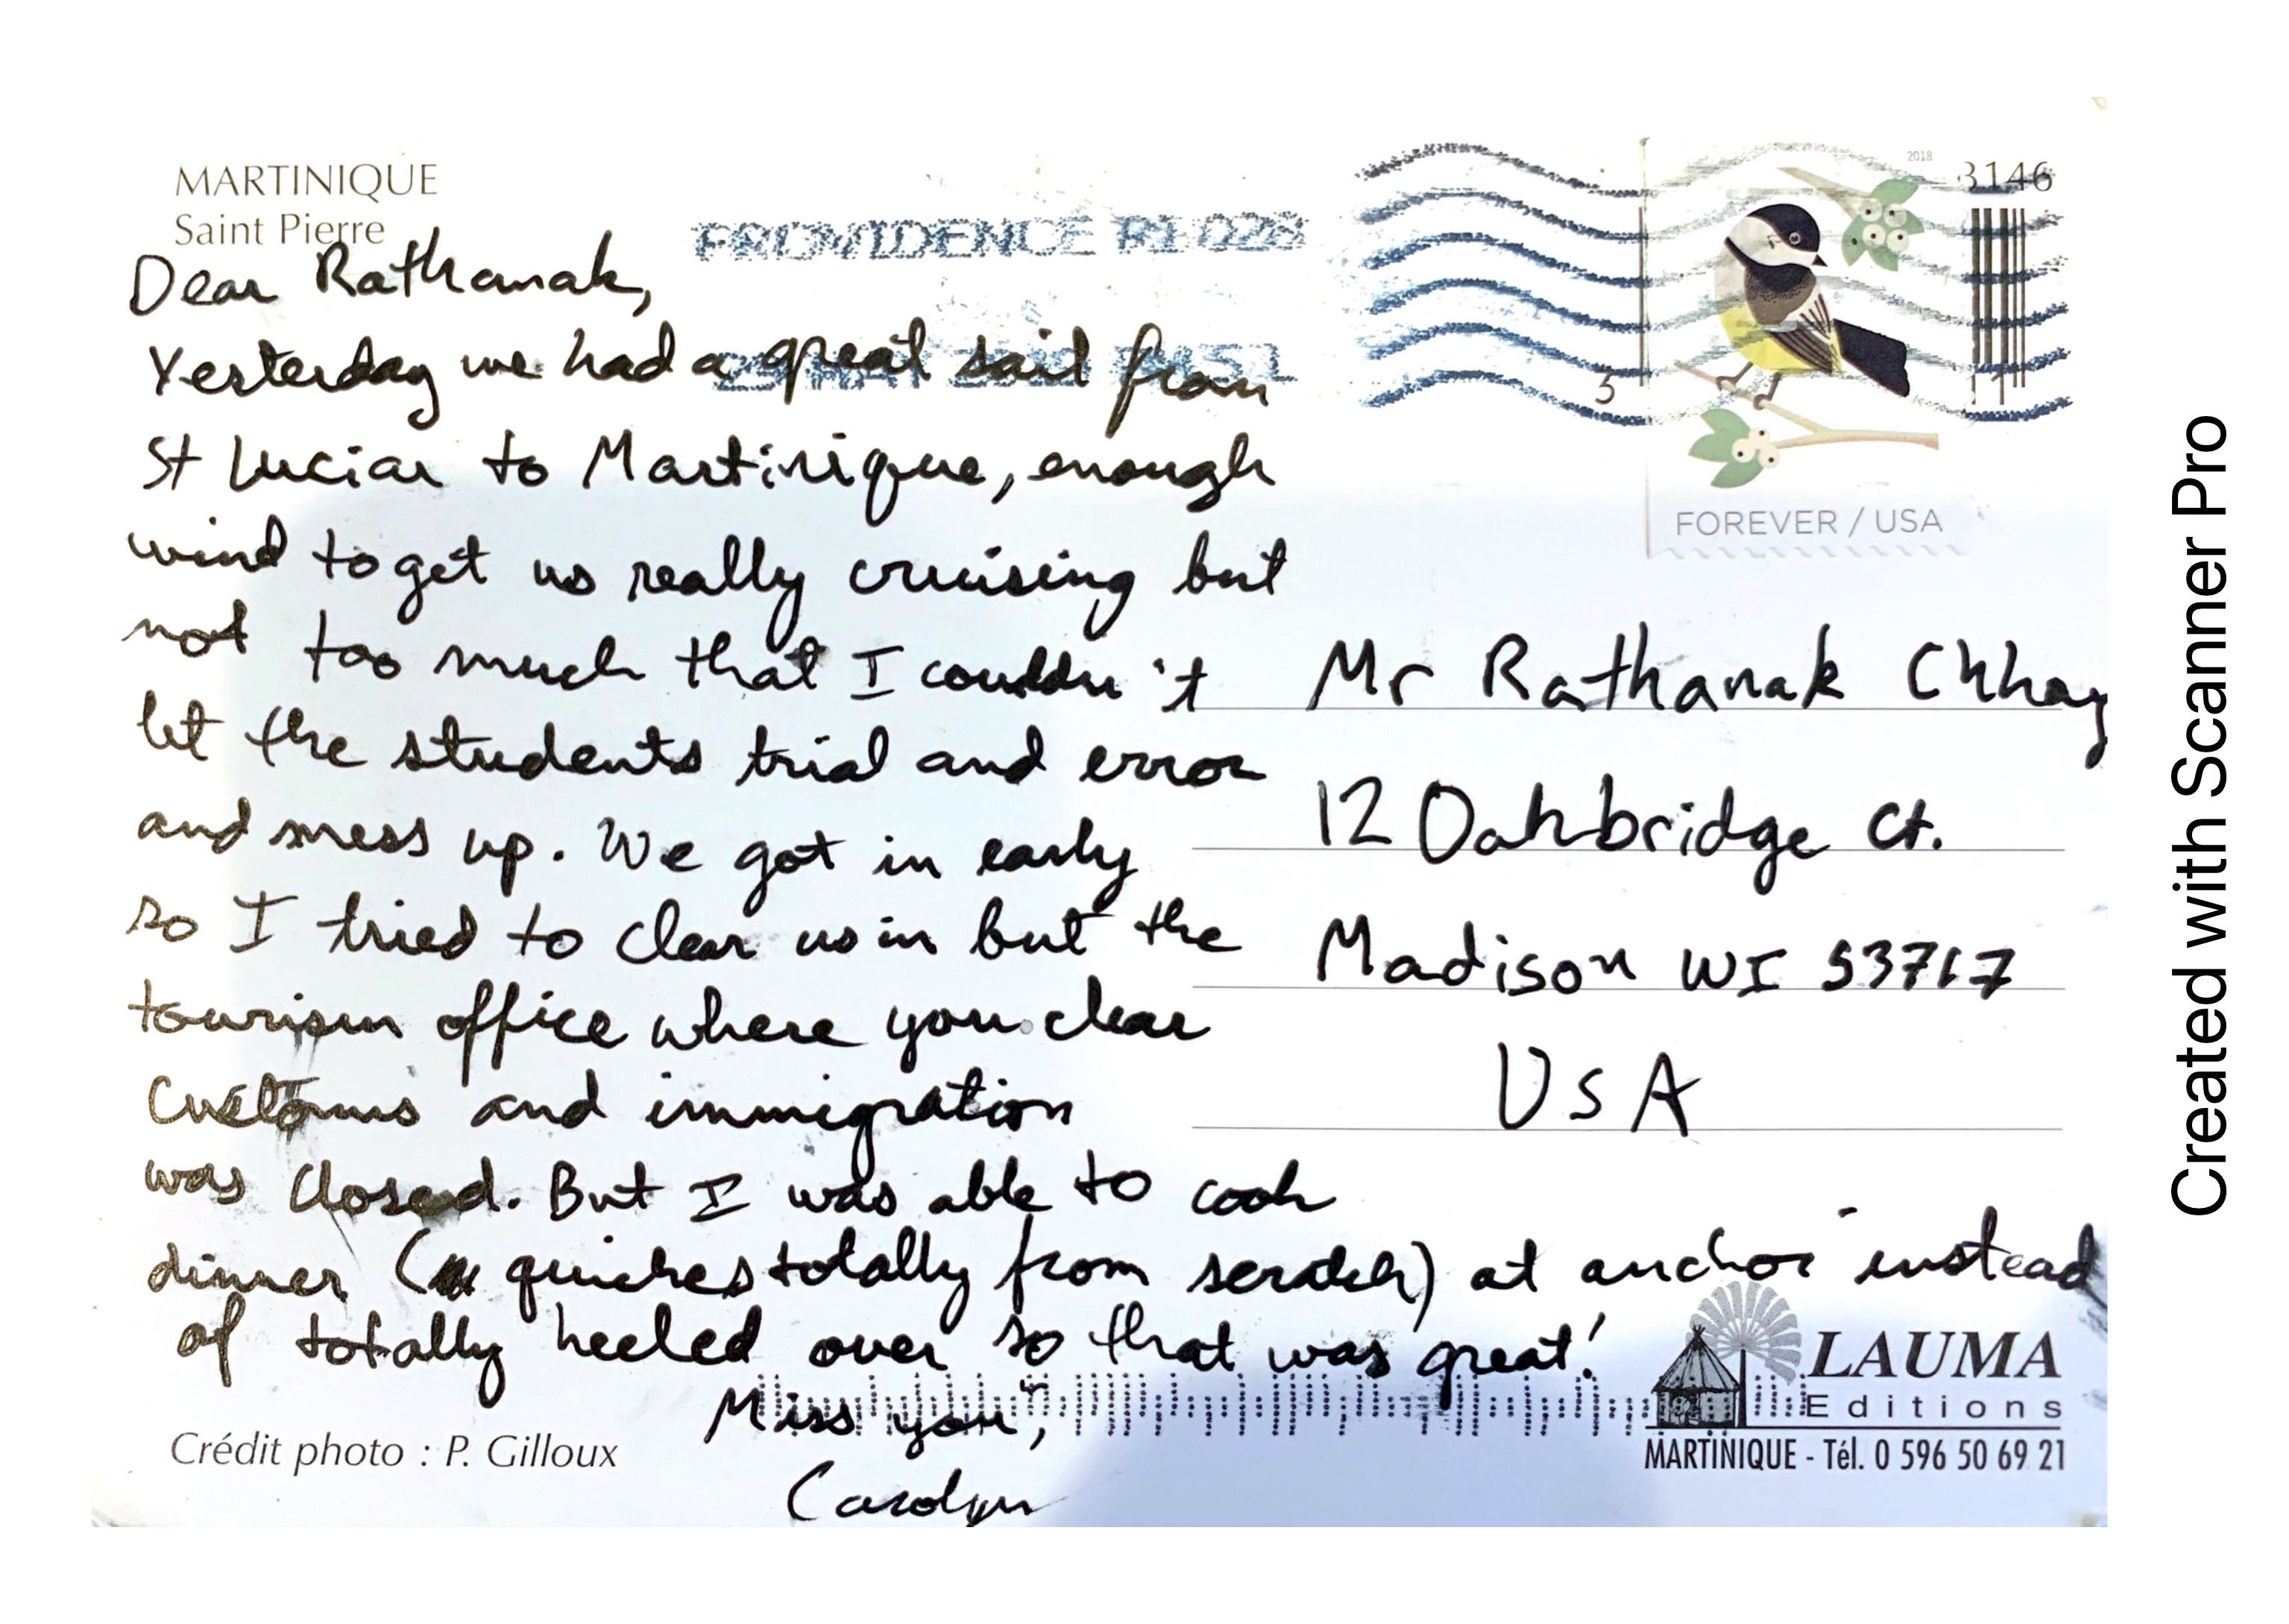 MARTINIQUE
Saint Pierre
PROVIDENCE RI 028
2018
3146
3
11
FOREVER / USA
Dear Rathanak,
Yesterday we had a great sail from
St Lucia to Martinique, enough
wind to get us really cruising but
not too much that I couldn't
let the students trial and error
and mess up. We got in early
so I tried to clear us in but the
tourism office where you clear
Customs and immigration
was closed. But I was able to cook
dinner (quiches totally from scratch) at anchor instead
of totally heeled over so that was great!
Miss you,
Carolyn
Mr Rathanak Chhay
12 Oakbridge Ct.
Madison WI 53717
USA
Crédit photo : P. Gilloux
LAUMA
Editions
MARTINIQUE - Tél. 0 596 50 69 21
Created with Scanner Pro